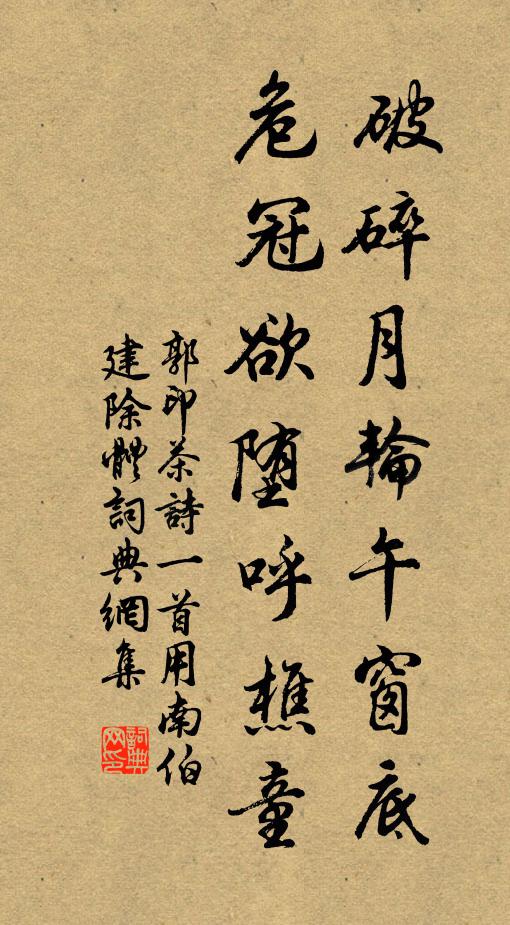 破碎月輪午窗底
危冠欲墮呼樵童
郭印茶詩一首用南伯
建除體詞典網集
詞典网印